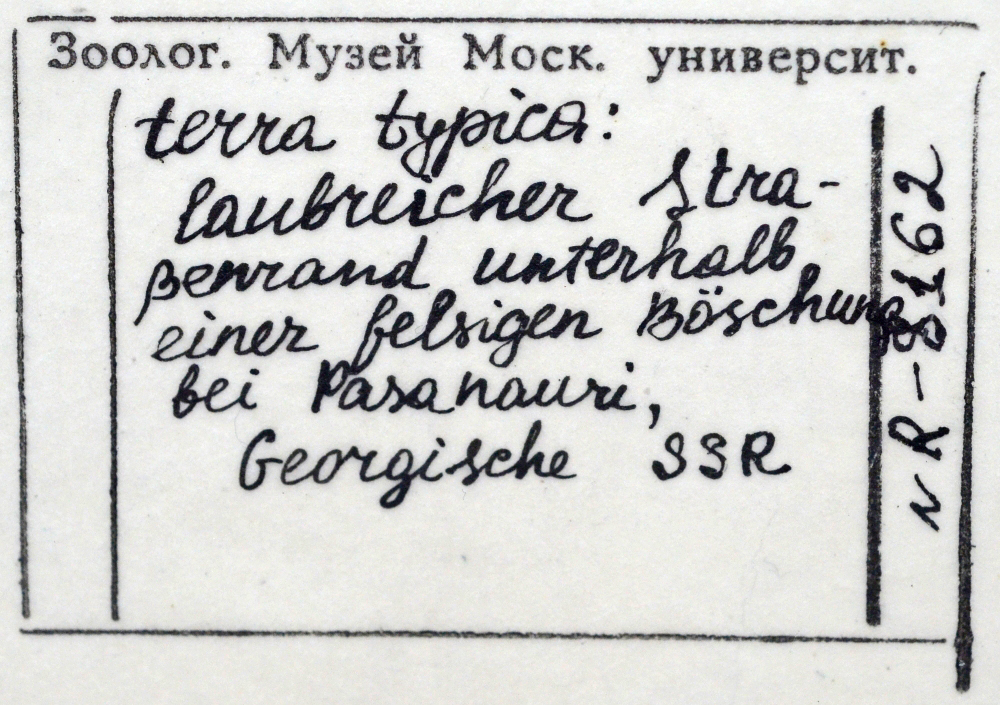 Зоолог. Музей Моск. университ.
terra typica:
laubreicher Stra-
ßenrand unterhalb
einer felsigen Böschung
bei Pasanauri,
Georgische SSR
NR-8162